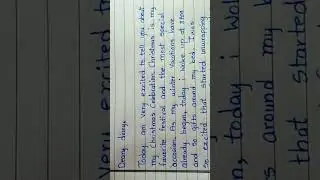 Dreary diary,
Today am very excited to tell you about
my Christmas Celebration. Christmas is my
favorite festival and the most special
occasion. As my winter vacations have
already began, today i woke up at 7am
and so gifts around my bed. I was
so excited that started unwrapping